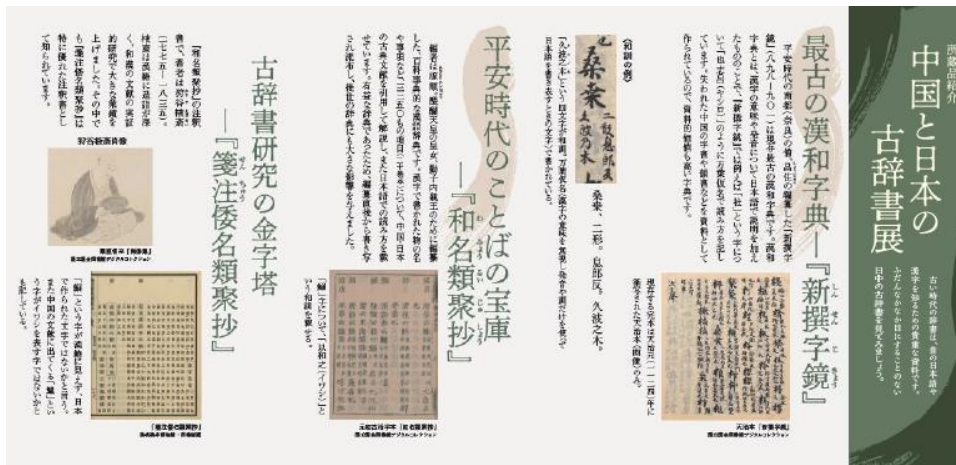 所蔵品紹介
中国と日本の
古辞書展
古い時代の辞書は、昔の日本語や
漢字を知るための貴重な資料です。
ふだんなかなか目にすることのない
日中の古辞書を見てみましょう。
最古の漢和字典―『新撰字鏡』
しんせんじきょう
平安時代の南都(奈良)の僧、昌住の編纂した『新撰字
鏡』(八九八―九〇一)は現存最古の漢和字典です。漢和
字典とは、漢字の意味や発音について日本語で説明を加え
たもののことで、『新撰字鏡』では例えば「社」という字につ
いて「也志呂」(ヤシロ)のように万葉仮名で読み方を記し
ています。失われた中国の字書や韻書などを資料として
作られているので、資料的価値も高い字典です。
現存する完本は天治元(一一二四)年に
書写された天治本(画像)のみ。
天治本『新撰字鏡』
国立国会図書館デジタルコレクション
(和訓の例)
桑桒
久波乃木
桑桒、二形。息郎反。久波之木。
「久波之木」という四文字が和訓。万葉仮名(漢字の意味を無視し発音や訓だけを使って
日本語を書き表すときの文字)で書かれている。
平安時代のことばの宝庫
―『和名類聚抄』
わみょうるいじゅしょう
編者は源順。醍醐天皇の皇女、勤子内親王のために編纂
した、百科事典的な漢和辞典です。漢字で書かれた物の名
や事象など、
の古典文献を引用して解説し、また日本語での読み方を載
せています。有益な辞典であったため、編纂直後から書き写
され流布し、後世の辞典にも大きな影響を与えました。
「鰯」字について、「以和之(イワシ)」と
いう和訓を載せる。
元和古活字本『和名類聚抄』
国立国会図書館デジタルコレクション
古辞書研究の金字塔
―『箋注倭名類聚抄』
せんちゅう
『和名類聚抄』の注釈
書で、著者は狩谷棭斎
(一七七五―一八三五)。
棭斎は漢籍に造詣が深
く、和漢の文献の実証
的研究で大きな業績を
上げました。その中で
も『箋注倭名類聚抄』は
特に優れた注釈書とし
て知られています。
狩谷棭斎肖像
国立国会図書館デジタルコレクション
「鰯」という字が漢籍に見えず、日本
で作られた文字ではないかと言う。
また中国の文献に出てくる「鰮」とい
う字がイワシを表す字ではないかと
も記している。
『箋注倭名類聚抄』